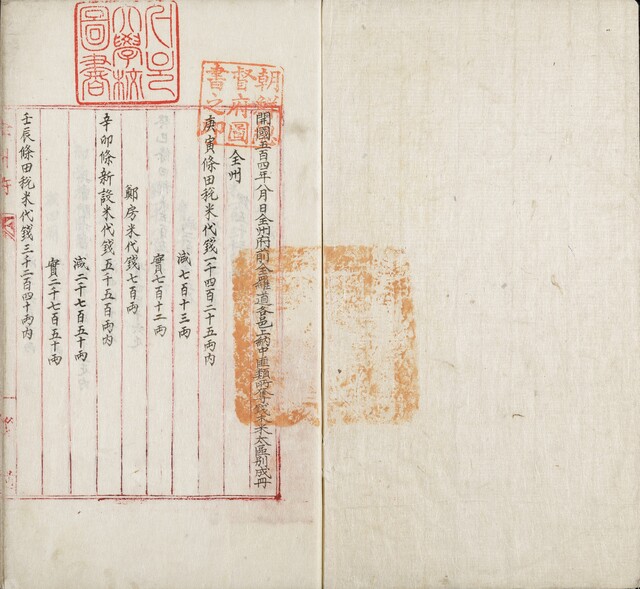 小學校
圖書
朝鮮總
督府圖
書之印
開國五百四年八月日全州府前全羅道各邑上納中匪類所奪錢木米太區別成冊
全州
庚寅條田稅米代錢一千四百二十五兩內
減七百十三兩
實七百十二兩
房米代錢七百兩
辛卯條新設米代錢五千五百兩內
減二千七百五十兩
實二千七百五十兩
壬辰條田稅米代錢三千二百四十兩內